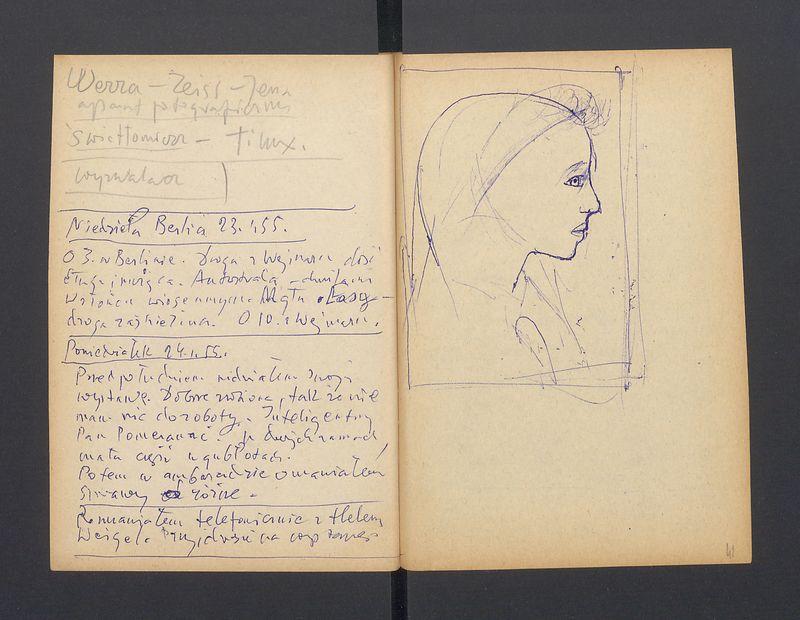 Werra – Zeiss – Jena
aparat fotograficzny
światłomierz –
wyzwalacz
Niedziela Berlin 23.I.55.
O 3. w Berlinie. Droga z Weimaru dość
długa i Autostrada – chwilami
w słońcu Mgła. Lasy –
droga zaśnieżona. O 10. z Weimaru.
Poniedziałek 24.I.55.
Przed południem widziałem swoją
wystawę. Dobrze zrobiona, tak że nie
mam nic do roboty. Inteligentny
Pan Pomeranz. W dwóch ramach
mała część w gablotach.
Potem w ambasadzie omawiałem
sprawy różne –
Rozmawiałem telefonicznie z Heleną
Weigel. Przyjdzie na
41